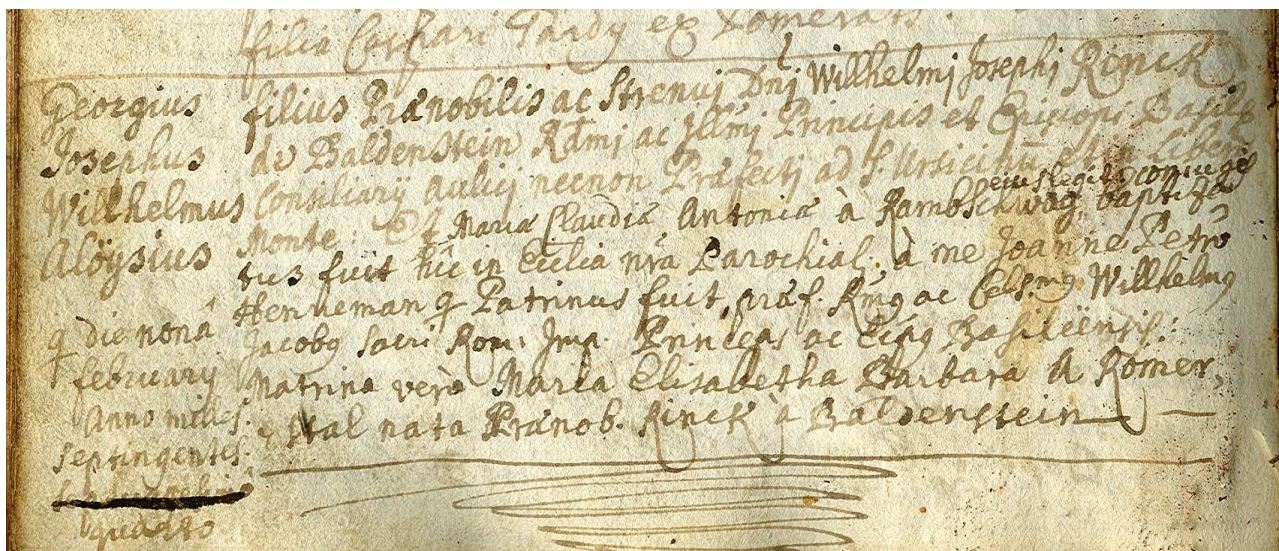 filia Caspari Tardy ex Domerats.
Georgius
Josephus
Willhelmus
Aloÿsius
q die nonâ
februarÿ
Anno milles.
septingentes.
quarto
filius Prænobilis ac Strenuj Dnj Willhelmj Josephj Rinck
de Baldenstein Rdmj ac Jllmj Principis et Episcopi Basile
Consiliarÿ aulicj necnon Præfectj ad S. Ursicinũ et in libero
Monte: Et Mariæ Claudiæ Antoniæ à Rambschwag ejus legit. conjugis baptiza
tus fuit hic in Ecclia nrâ Parochial. à me Joanne Petro
Henneman q Patrinus fuit, præf. Rmg ac Cels.mg Willhelmg
Jacobg Sacri Rom. Jmp. Princeps ac Epg Basileënsis:
Matrina verò Maria Elisabetha Barbara à Römer,
stal nata Prænob. Rinck à Baldenstein